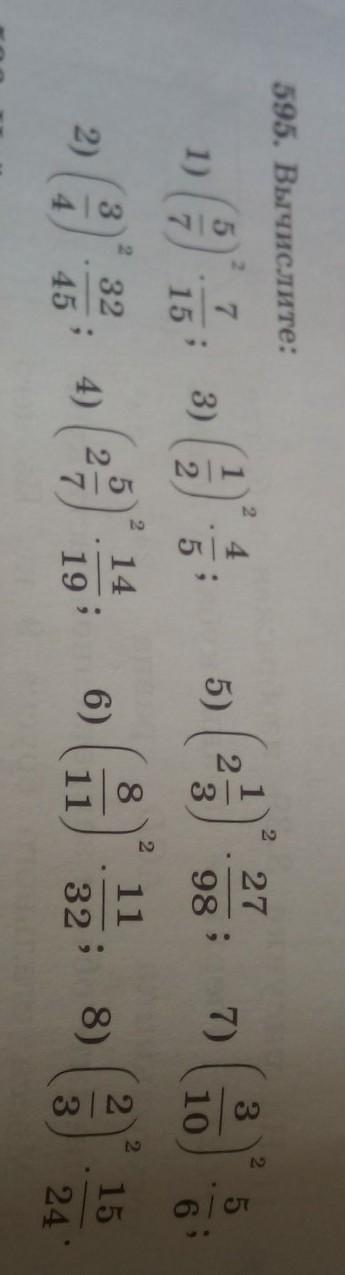 595. Вычислите:
1) (5/7)² · 7/15; 3) (1/2)² · 4/5; 5) (2 1/3)² · 27/98; 7) (3/10)² · 5/6;
2) (3/4)² · 32/45; 4) (2 5/7)² · 14/19; 6) (8/11)² · 11/32; 8) (2/3)² · 15/24.